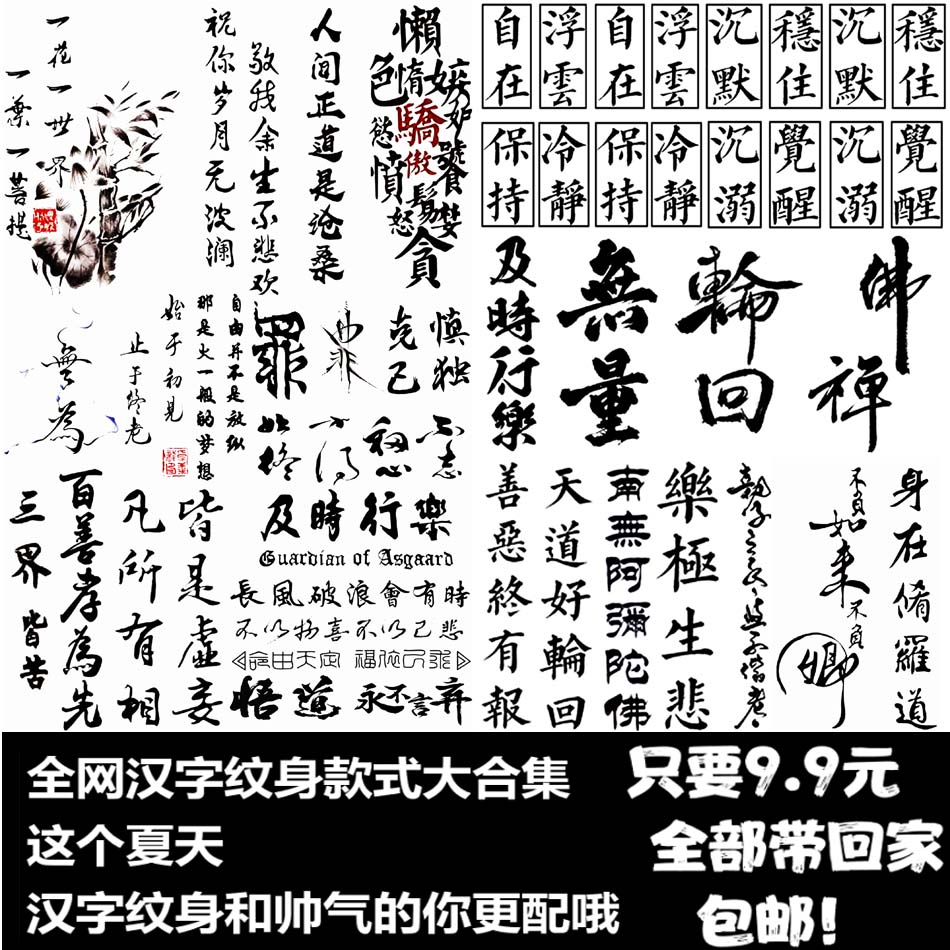 一花一世界
一葉一菩提
祝你岁月无波澜
敬我余生不悲欢
人间正道是沧桑
懶
惰
色
嫉妒
慾
驕
傲
憤
怒
饕
餮
貪
自在
浮雲
自在
浮雲
沉默
穩住
沉默
穩住
保持
冷靜
保持
冷靜
沉溺
覺醒
沉溺
覺醒
及時行樂
無量
輪回
佛
禪
無為
止于终老
始于初見
那是火一般的梦想
自由并不是放纵
罪
克己
慎独
始终
不得
初心
不忘
及時行樂
Guardian of Asgaard
長風破浪會有時
不以物喜不以己悲
命由天定 福依己承
悟道
永不言弃
三界皆苦
百善孝為先
凡所有相
皆是虛妄
善惡終有報
天道好輪回
南無阿彌陀佛
樂極生悲
不負如来不負卿
身在脩羅道
全网汉字纹身款式大合集
这个夏天
汉字纹身和帅气的你更配哦
只要9.9元
全部带回家
包邮!